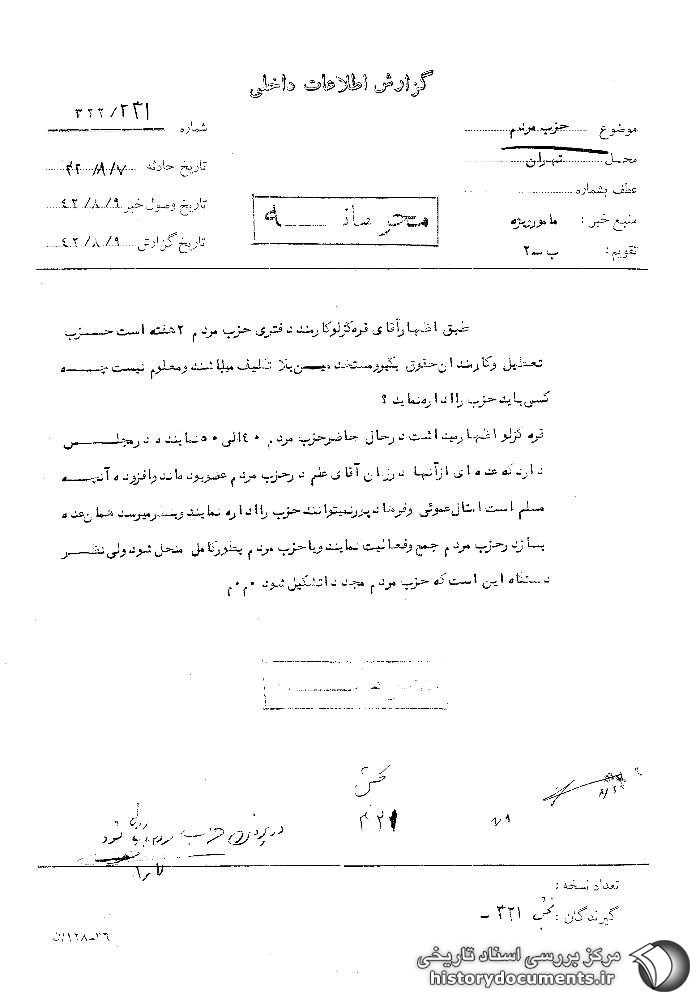 گزارش اطلاعات داخلی
شماره ۳۲۲/۲۳۱
موضوع حزب مردم
محل تهران
عطف بشماره
منبع خبر : مامور ویژه
تقویم : ب ـ ۲
تاریخ حادثه ۴۲/۸/۷
تاریخ وصول خبر ۴۲/۸/۹
تاریخ گزارش ۴۲/۸/۹
محرمانه
طبق اظهار آقای قره گزلو کارمند دفتری حزب مردم ۲ هفته است حزب
تعطیل و کارمندان حقوق بگیر و مستخدمین بلا تکلیف میباشند و معلوم نیست چه
کسی باید حزب را اداره نماید ؟
قره گزلو اظهار میداشت در حال حاضر حزب مردم ۴۰ الی ۵۰ نماینده در مجلس
دارد که عده ای از آنها در زمان آقای علم در حزب مردم عضو بوده اند و افزوده آنچه
مسلم است امثال عموئی و فرهاد پور نمیتوانند حزب را اداره نمایند و بنظر میرسد همان عده
باز در حزب مردم جمع و فعالیت نمایند و یا حزب مردم بطور کامل منحل شود ولی نظر
دستگاه این است که حزب مردم مجددا تشکیل شود م۰م۰
بخش
۳۲۱
۸/۹
در پرونده حزب مردم شود
تعداد نسخه :
گیرندگان : بخش ۳۲۱ -
۳۶-۱۲۸/ن
مرکز بررسی اسناد تاریخی
historydocuments.ir